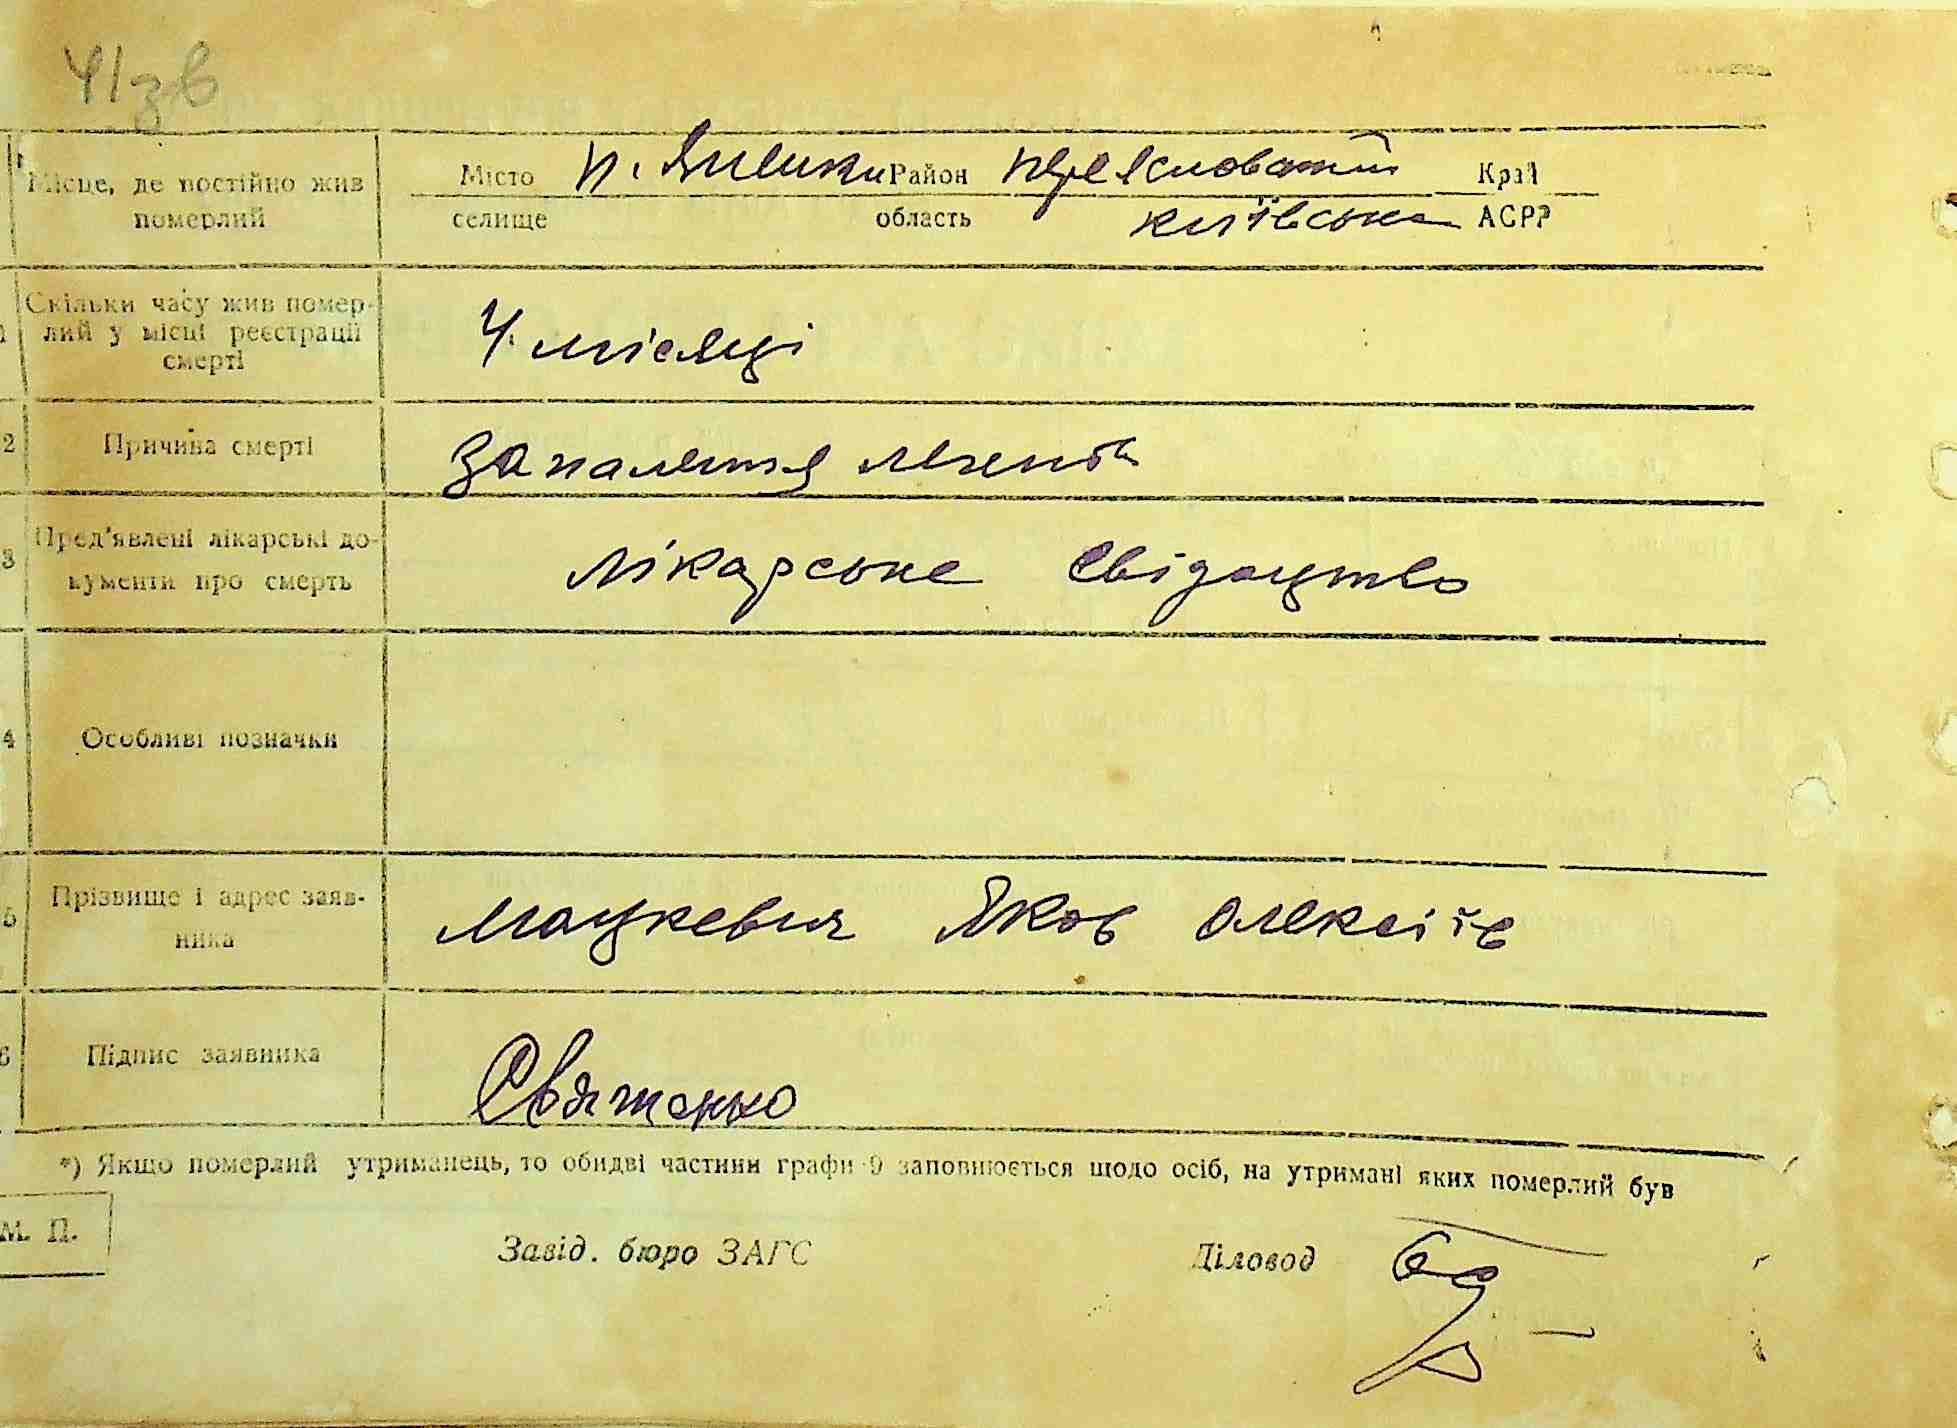 41зв
Місце, де постійно жив померлий
Місто Район переяславський Край
селище область київська АСРР
Скільки часу жив помер-
лий у місці реєстрації
смерті
4 місяці
2 Причина смерті запалення легенів
3 Пред'явлені лікарські до-
кументи про смерть
лікарське свідоцтво
4 Особливі позначки
5 Прізвище і адрес заяв-
ника
Мацкевич Яков Олексіїв
6 Підпис заявника Святенко
*) Якщо померлий утриманець, то обидві частини графи 9 заповнюється щодо осіб, на утримані яких померлий був
М. П.
Завід. бюро ЗАГС Діловод